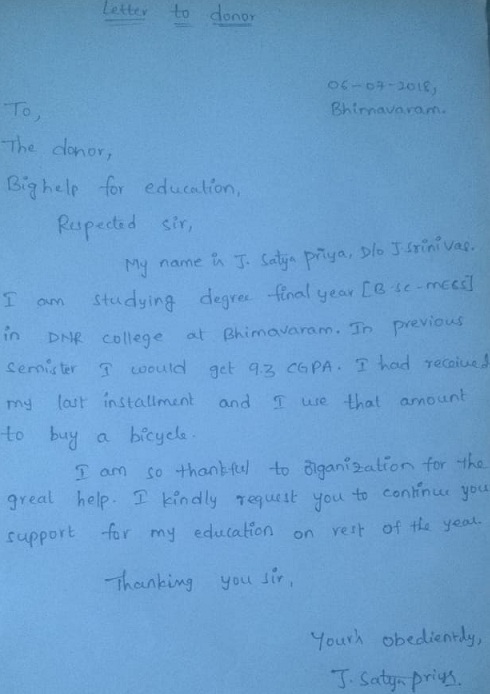 Letter to donor
06-07-2018,
Bhimavaram.
To,
The donor,
Big help for education,
Respected sir,
My name is J. Satya priya, D/o J Srinivas.
I am studying degree final year [B.sc-mecs]
in DNR college at Bhimavaram. In previous
Semister I would get 9.3 CGPA. I had received
my last installment and I use that amount
to buy a bicycle.
I am so thankful to organization for the
great help. I kindly request you to continue you
support for my education on rest of the year.
Thanking you sir,
Your's obediently,
J. Satya priya.